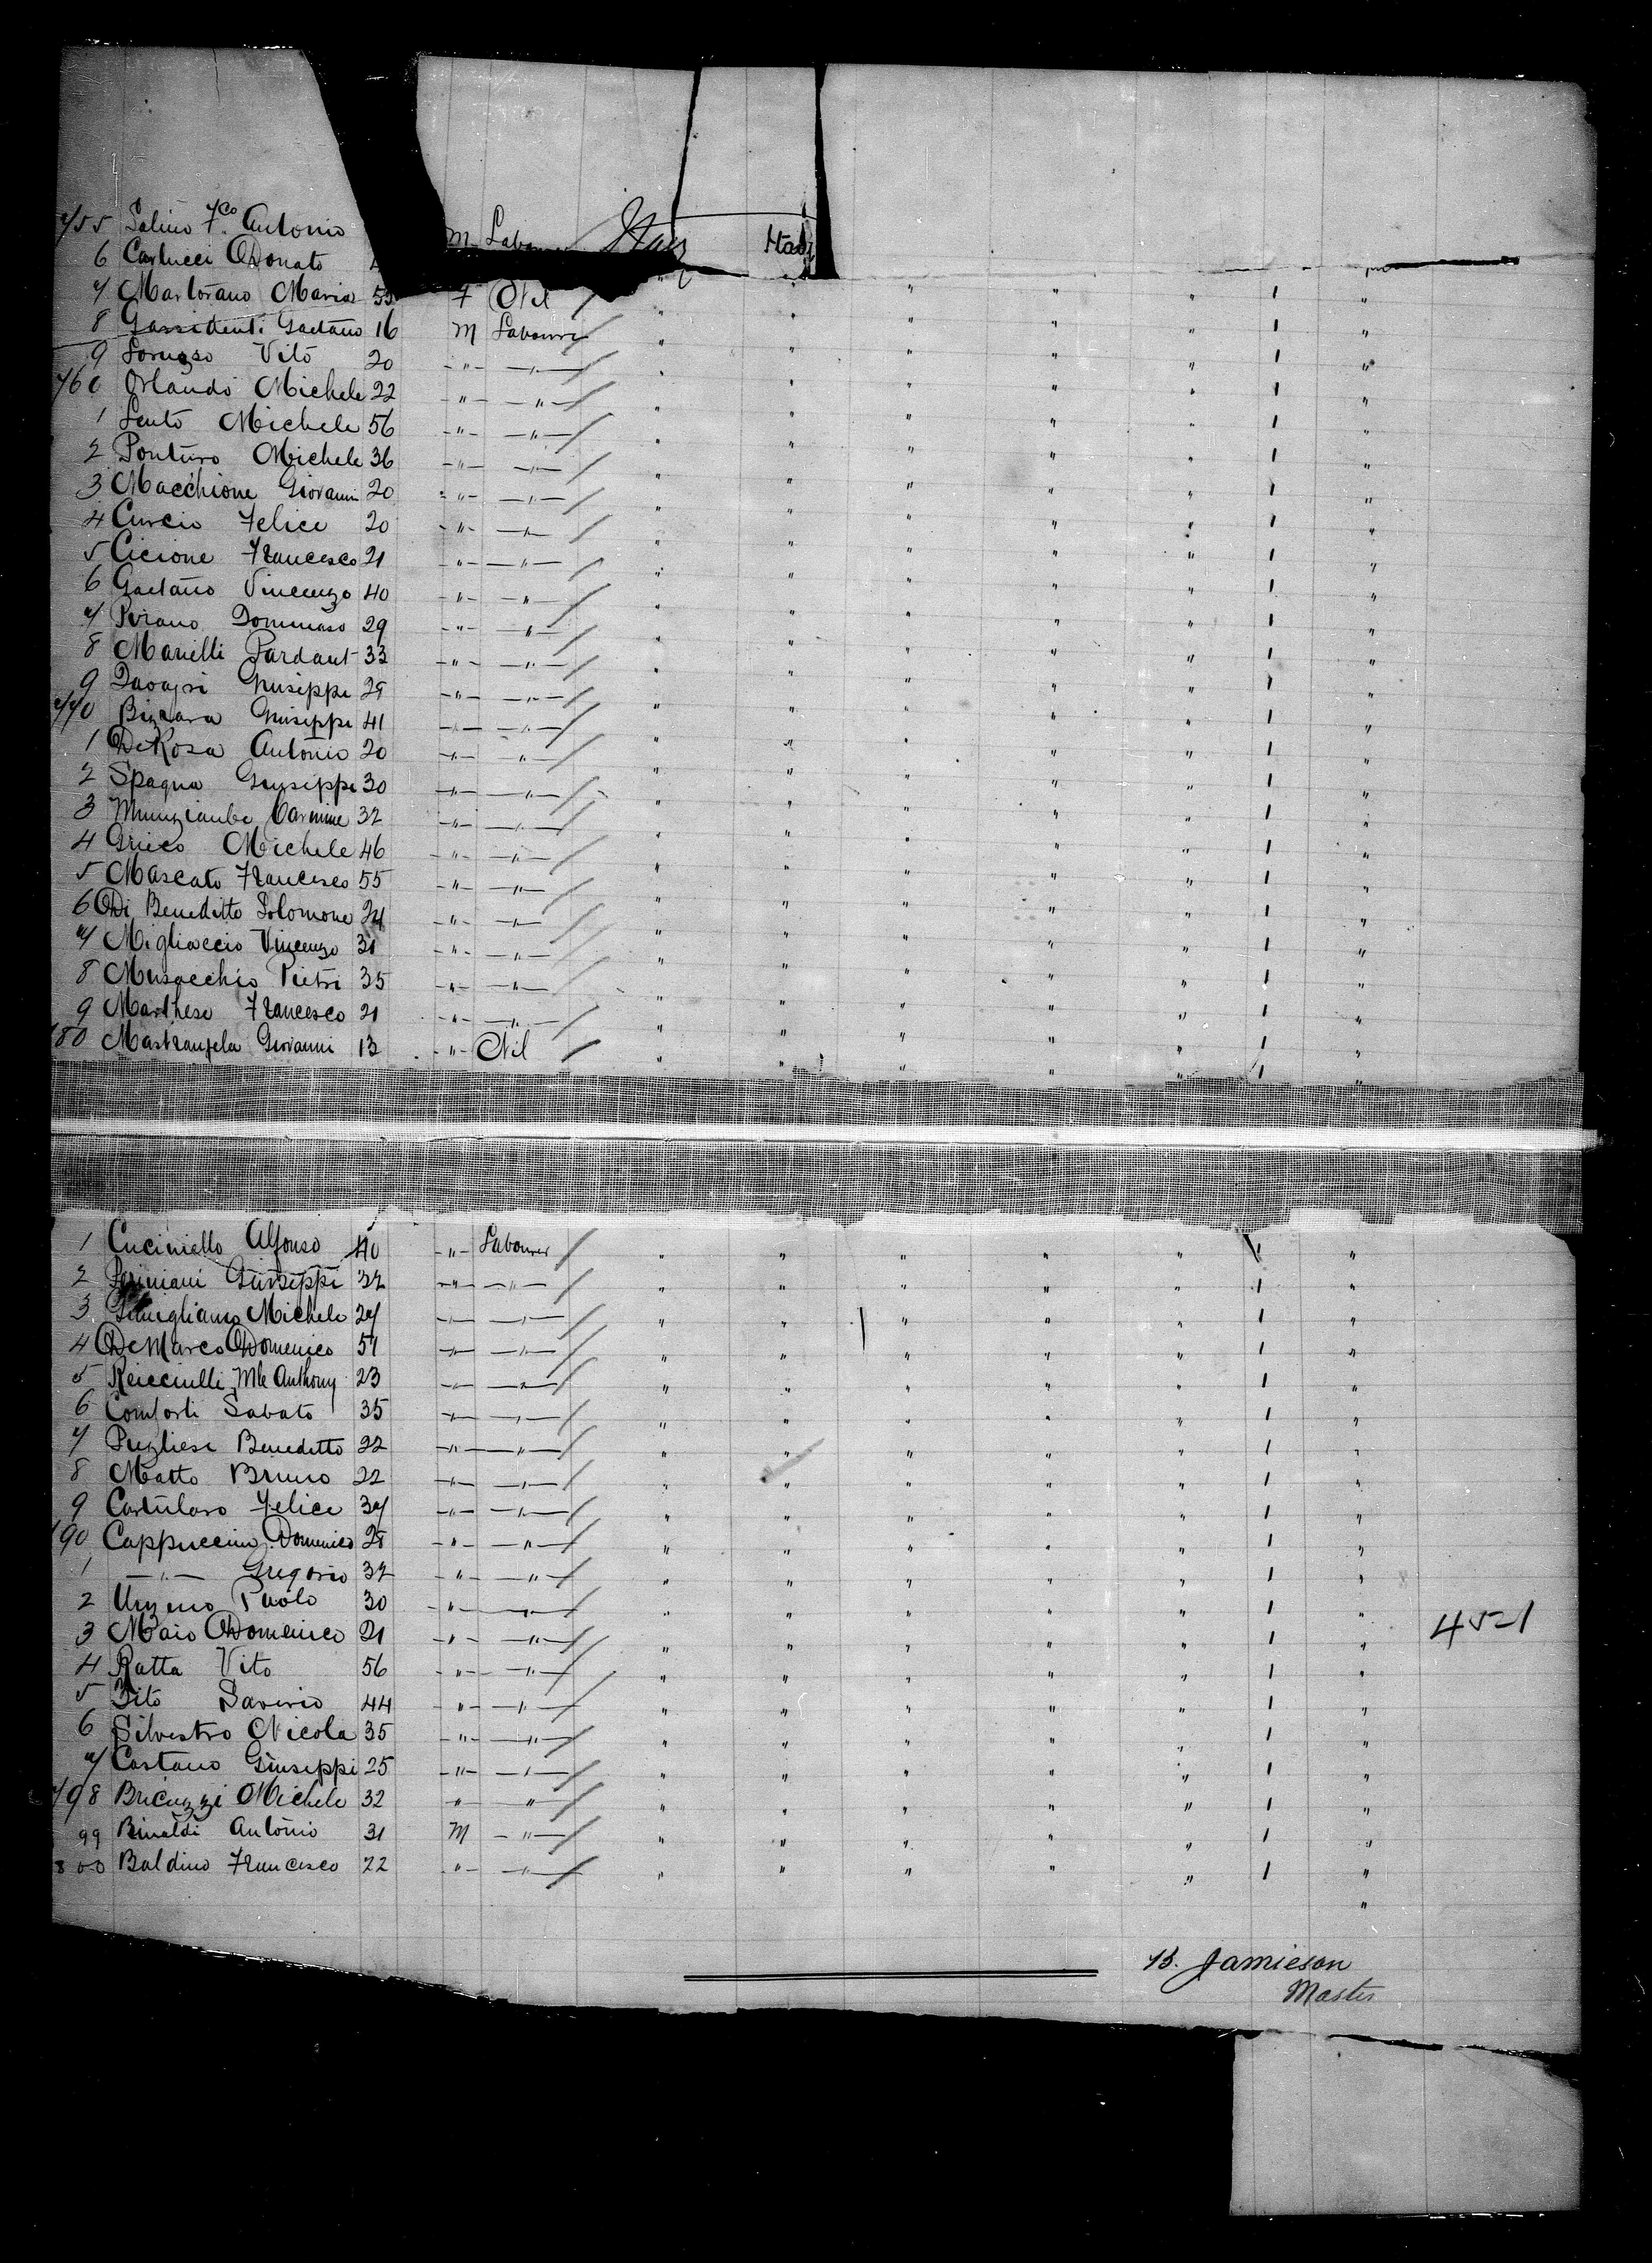 755 Salino Fco. Antonio M Labourer Italy Italy
6 Carlucci Donato
7 Martorano Maria 55 F Nil " " " " " 1 "
8 Gaetano 16 M Labourer " " " " " 1 "
9 Loruzso Vito 20 -"- -"- " " " " " 1 "
760 Orlando Michele 22 -"- -"- " " " " " 1 "
1 Lento Michele 56 -"- -"- " " " " " 1 "
2 Ponturo Michele 36 -"- -"- " " " " " 1 "
3 Macchione Giovanni 20 -"- -"- " " " " " 1 "
4 Curcio Felice 20 -"- -"- " " " " " 1 "
5 Cicione Francesco 21 -"- -"- " " " " " 1 "
6 Gaetano Vincenzo 40 -"- -"- " " " " " 1 "
7 Pirano Dommaso 29 -"- -"- " " " " " 1 "
8 Marielli Pardant 33 -"- -"- " " " " " 1 "
9 Giuseppe -"- -"- " " " " " 1 "
770 Bizzara Giuseppe 41 -"- -"- " " " " " 1 "
1 De Rosa Antonio 20 -"- -"- " " " " " 1 "
2 Spagna Giuseppe 30 -"- -"- " " " " " 1 "
3 Carmine 32 -"- -"- " " " " " 1 "
4 Grieco Michele 46 -"- -"- " " " " " 1 "
5 Mascato Francesco 55 -"- -"- " " " " " 1 "
6 Di Benedetto Solomone 24 -"- -"- " " " " " 1 "
7 Migliaccio Vincenzo 31 -"- -"- " " " " " 1 "
8 Musacchio Pietri 35 -"- -"- " " " " " 1 "
9 Marthese Francesco 21 -"- -"- " " " " " 1 "
780 Mastrangela Giovanni 13 -"- Nil " " " " " 1 "
1 Cuciniello Alfonso 40 -"- Labourer " " " " " 1 "
2 Giuseppi 32 -"- -"- " " " " " 1 "
3 Michele 27 -"- -"- " " " " " 1 "
4 De Marco Domenico 51 -"- -"- " " " " " 1 "
5 Reicciulli Mle Anthony 23 -"- -"- " " " " " 1 "
6 Comforti Sabato 35 -"- -"- " " " " " 1 "
7 Pugliese Benedetto 22 -"- -"- " " " " " 1 "
8 Matto Bruno 22 -"- -"- " " " " " 1 "
9 Cartularo Felice 37 -"- -"- " " " " " 1 "
790 Cappuccino Domenico 28 -"- -"- " " " " " 1 "
1 -"- Gregorio 32 -"- -"- " " " " " 1 "
2 Paolo 30 -"- -"- " " " " " 1 "
3 Maio Domenico 21 -"- -"- " " " " " 1 " 45=1
4 Ratta Vito 56 -"- -"- " " " " " 1 "
5 Tito Saverio 44 -"- -"- " " " " " 1 "
6 Silvestro Nicola 35 -"- -"- " " " " " 1 "
7 Castano Giuseppi 25 -"- -"- " " " " " 1 "
798 Bricuzzi Michele 32 " " " " " " " 1 "
99 Binaldi Antonio 31 M -"- " " " " " 1 "
800 Baldino Francesco 22 -"- -"- " " " " " 1 "
"
B. Jamieson
Master